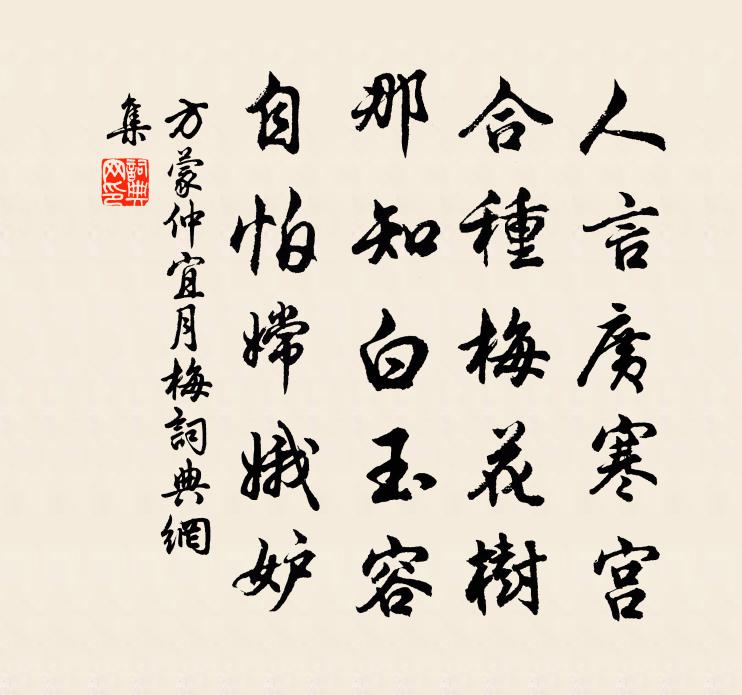 人言廣寒宮
合種梅花樹
那知白玉容
自怕嫦娥妒
方蒙仲宜月梅詞典網
集
詞典
网印